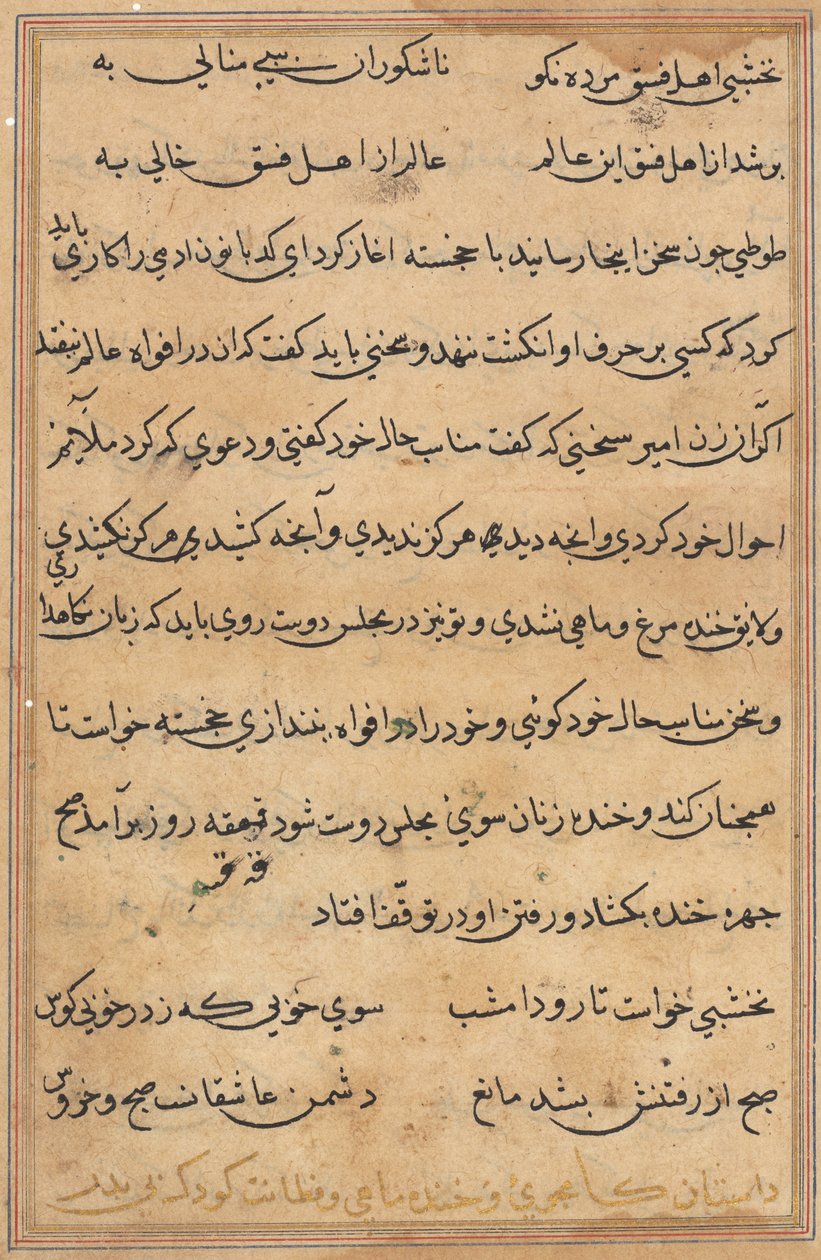 نخشبي اهل فسق مرده نكو ناشكوران بسي منالي به
پر شد از اهل فسق اين عالم عالم از اهل فسق خالي به
طوطي جون سخن اينجا رسانيد با خجسته اغاز كرد اي كدبانو ن ادمي را كاري بايد
كرد كه كسي بر حرف او انكشت ننهد و سخني بايد كفت كه ان در افواه عالم نيفتد
اكر ان زن امير سخني كه كفت مناسب حال خود كفتي و دعوي كه كرد ملايم
احوال خود كردي و انجه ديدي هركز نديدي و آنجه كشيدي هركز نكشيدي
و لايق خنده مرغ و ماهي نشدي و تو نيز در مجلس دوست روي بايد كه زبان نكاهداري
و سخن مناسب حال خود كوئي و خود را در افواه نيندازي خجسته خواست تا
همجنان كند و خنده زنان سوئ مجلس دوست شود قهقهه روز برآمد صبح
جهره خنده بكشاد و رفتن او در توقّف افتاد
نخشبي خواست تا رود امشب سوي خوبي كه زد در خوبي كوس
صبح از رفتنش بشد مانع دشمن عاشقانست صبح و خروس
داستان كامجوئ و خنده ماهي و فطانت كودك بي بدر